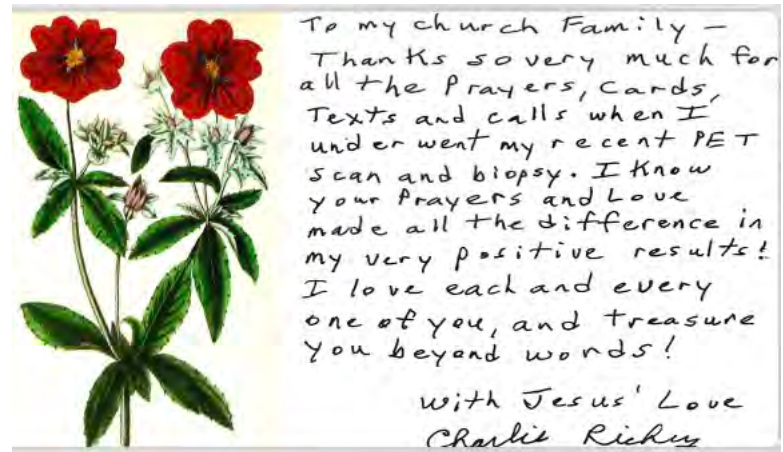 To my church Family —
Thanks so very much for
all the Prayers, Cards,
Texts and calls when I
underwent my recent PET
scan and biopsy. I Know
your Prayers and Love
made all the difference in
my very positive results!
I love each and every
one of you, and treasure
you beyond words!
with Jesus' Love
Charlie Richey